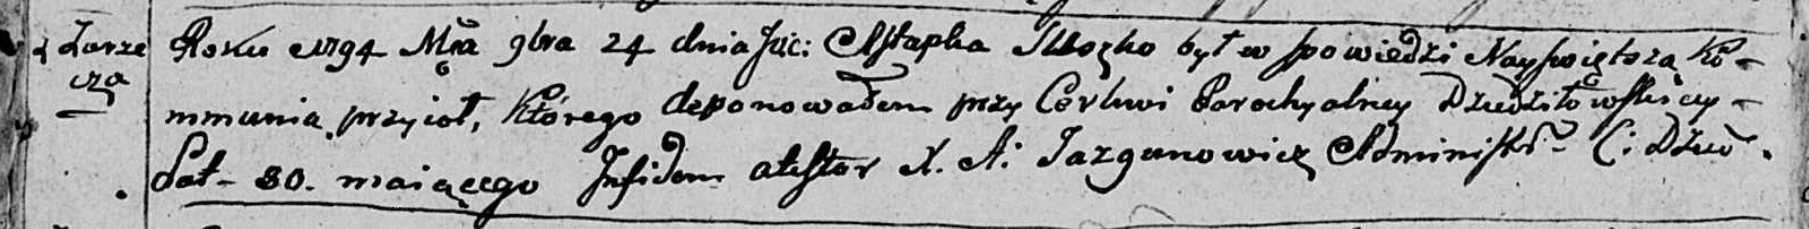 Zarze
cza
Roku 1794 Mca 9bra 24 dnia Juc: Astapka Suszko był w spowiedzi Nayświętszą Ko-
mmunią przyioł, Którego deponowałem przy Cerkwi Parochyalney Dziedziłowskiey-
Lat- 80. maiącego In fidem atestor X. A: Jazgunowicz Administr- C: Dziew.